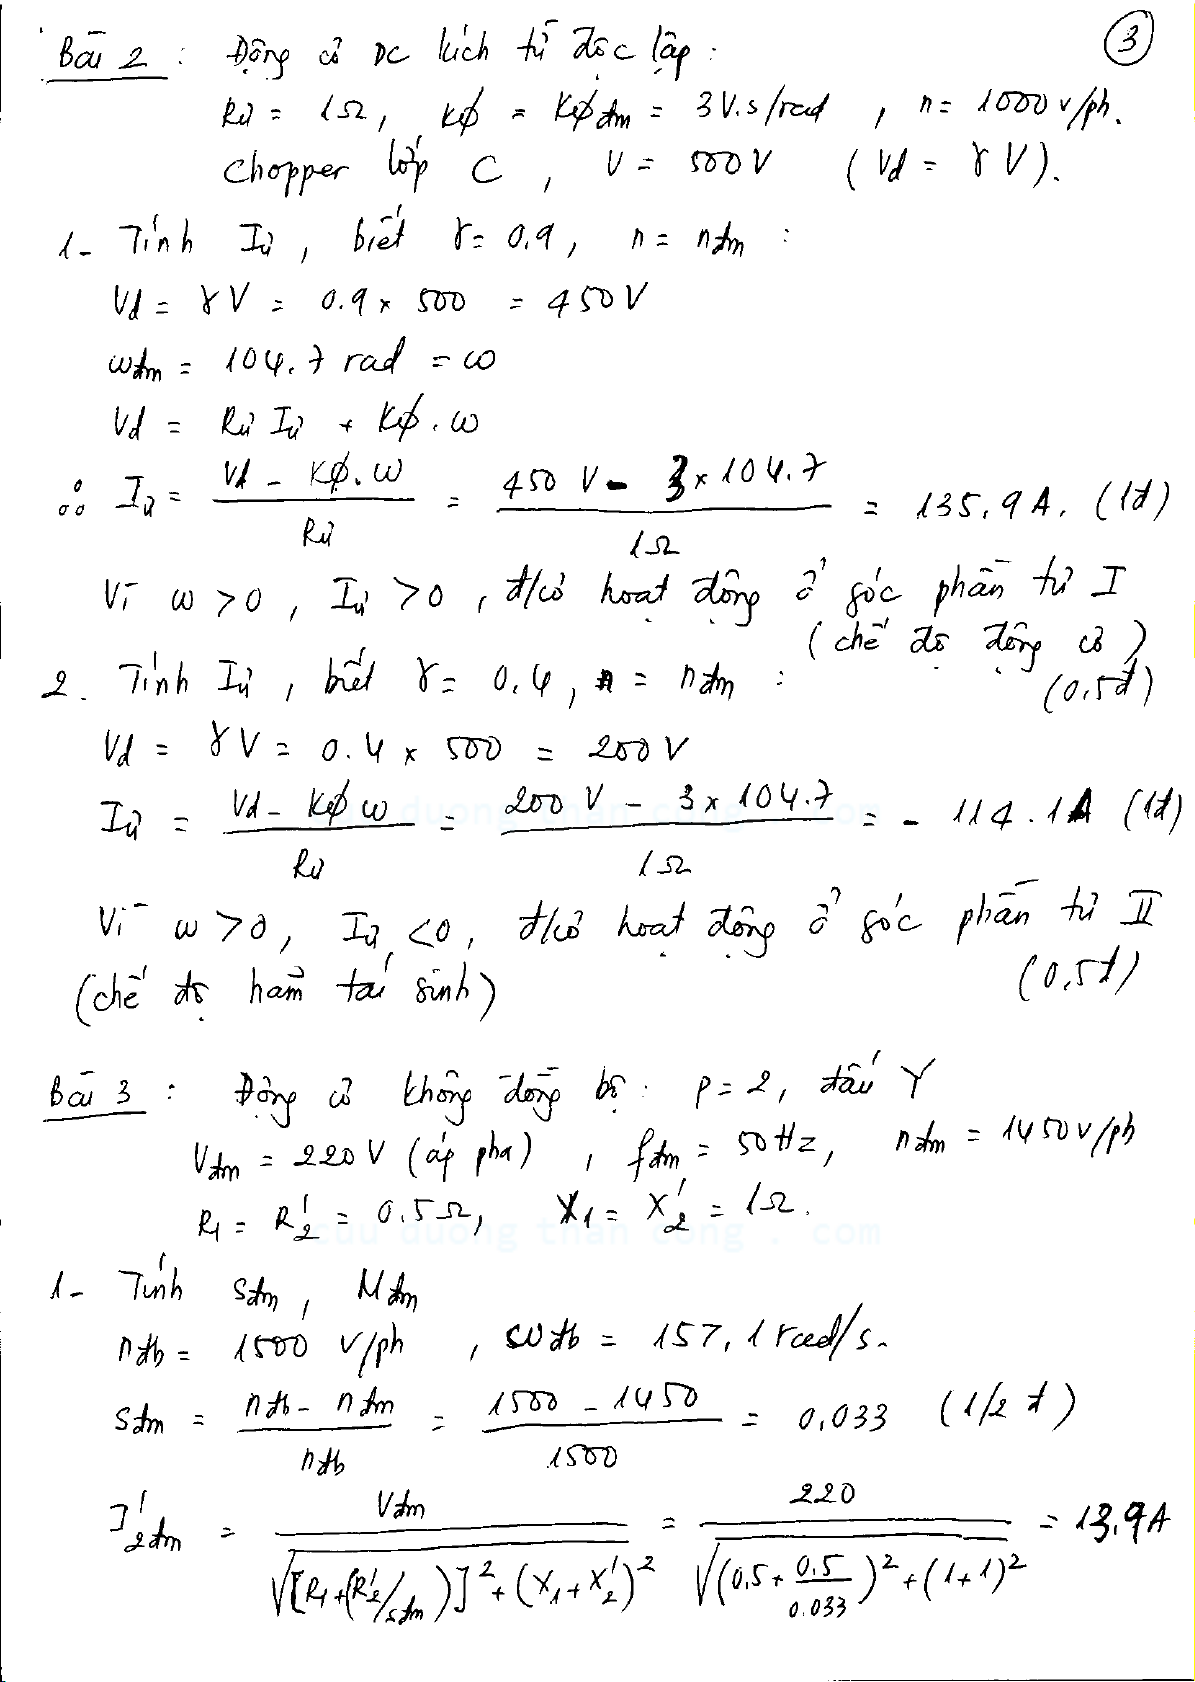 ③
Bài 2 : Động cơ DC kích từ độc lập :
Rư = 1Ω, Kφ = Kφđm = 3V.s/rad , n = 1000 v/ph.
Chopper lớp C , V = 500V (Vd = γV).
1- Tính Iư , biết γ = 0.9, n = nđm :
Vd = γV = 0.9 x 500 = 450V
ωđm = 104.7 rad = ω
Vd = Rư Iư + Kφ.ω
∴ Iư = (Vd - Kφ.ω)/Rư = (450 V - 3 x 104.7)/1Ω = 135,9 A. (1đ)
Vì ω > 0 , Iư > 0 , đ/cơ hoạt động ở góc phần tư I
(chế độ động cơ)
(0,5đ)
2. Tính Iư , biết γ = 0.4, n = nđm :
Vd = γV = 0.4 x 500 = 200V
Iư = (Vd - Kφω)/Rư = (200 V - 3 x 104.7)/1Ω = - 114.1A (1đ)
Vì ω > 0, Iư < 0, đ/cơ hoạt động ở góc phần tư II
(chế độ hãm tái sinh) (0,5đ)
Bài 3 : Động cơ không đồng bộ : p = 2, đấu Y
Vđm = 220V (áp pha) , fđm = 50Hz, nđm = 1450v/ph
R1 = R'2 = 0.5Ω, X1 = X'2 = 1Ω.
cuu duong than cong . com
1- Tính sđm , Mđm
nđb = 1500 v/ph , ωđb = 157,1 rad/s.
sđm = (nđb - nđm)/nđb = (1500 - 1450)/1500 = 0,033 (1/2 đ)
I'2đm = Vđm/√([R1+(R'2/sđm)]² + (X1+X'2)²) = 220/√((0.5+0.5/0.033)² + (1+1)²) = 13,9A